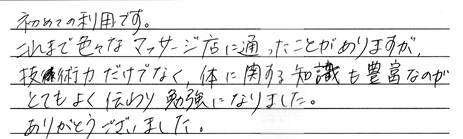 初めての利用です。
これまで色々なマッサージ店に通ったことがありますが、
技術力だけでなく、体に関する知識も豊富なのが
とてもよく伝わり勉強になりました。
ありがとうございました。